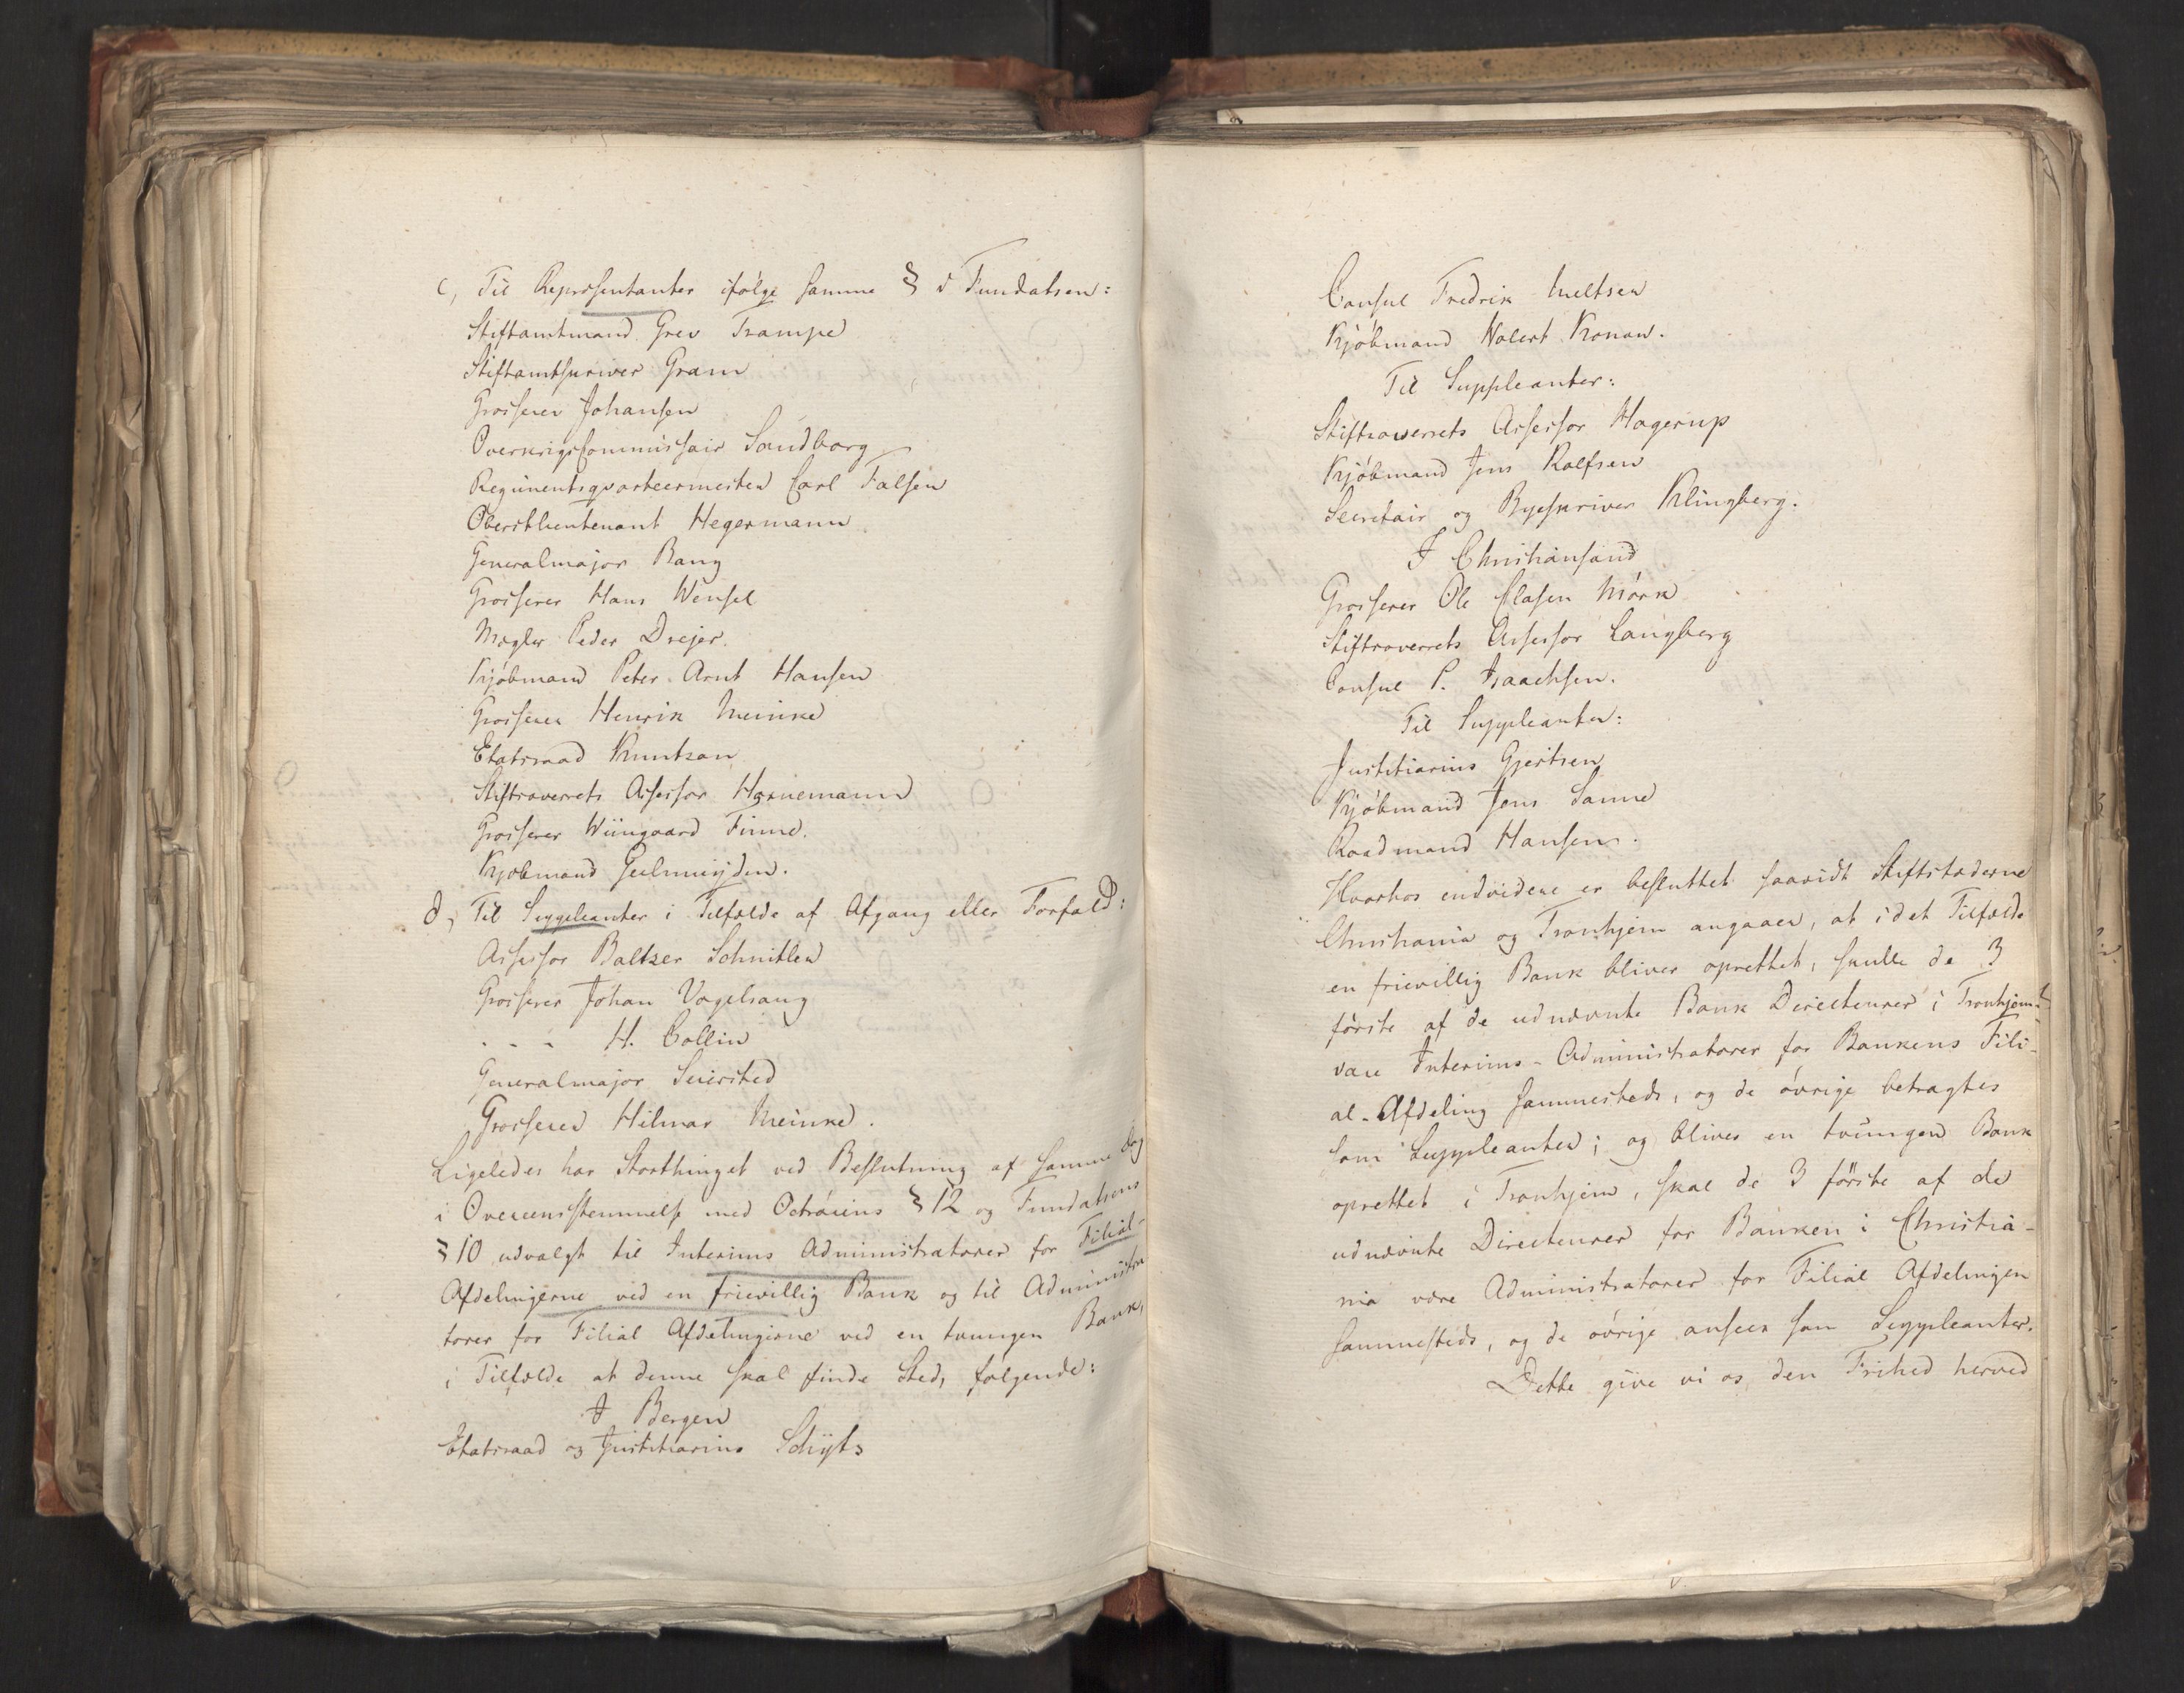 c, Til Repræsentanter ifölge samme § i Fundatsen:
Stiftamtmand Grev Trampe
Stiftamtskriver Gram
Grosserer Johansen
OverkrigsCommissair Sundborg
Regimentsqvarteermester Carl Falsen
Oberstlieutenant Hegermann
Generalmajor Bang
Grosserer Hans Wensel
Mægler Peder Drejer.
Kjöbmand Peter Arnt Hansen
Grosserer Henrik Meinke
Etatsraad Knutzon
Stiftsoverrets Assessor Hornemann
Grosserer Wiingaard Finne.
Kjöbmand Gulmeyden.
d, Til Suppleanter i Tilfælde af Afgang eller Forfald:
Assessor Baltzer Schnitler
Grosserer Johan Vogelsang
- - - H. Collin
Generalmajor Seiersted
Grosserer Hilmar Meinke.
Ligeledes har Storthinget ved Beslutning af samme Dag
i Overeensstemmelse med Octroiens § 12 og Fundatsens
§ 10 udvalgt til Interims Administratorer for Filial-
Afdelingerne ved en frievillig Bank og til Administra
torer for Filial Afdelingerne ved en tvungen Bank,
i Tilfælde at denne skal finde Sted, fölgende:
I Bergen
Etatsraad og Justitiarius Schydtz
Consul Fredrik Meltzer
Kjöbmand Wolert Konow.
Til Suppleanter:
Stiftsoverrets Assessor Hagerup
Kjöbmand Jens Rolfsen
Secretair og Byeskriver Klingberg.
I Christiansand
Grosserer Ole Clasen Mörk
Stiftsoverrets Assessor Langberg
Consul P. Isaachsen.
Til Suppleanter:
Justitiarius Gjertsen
Kjöbmand Jens Sanne
Raadmand Hansen.
Hvorhos endvidere er besluttet saavidt Stiftstæderne
Christiania og Tronhjem angaaer, at i det Tilfælde
en frievillig Bank bliver oprettet, skulle de 3
förste af de udnævnte Bank Directeurer i Tronhjem
være Interims-Administratorer for Bankens Fili-
al-Afdeling sammesteds, og de övrige betragtes
som Suppleanter; og bliver en tvungen Bank
oprettet i Tronhjem, skal de 3 förste af de
udnævnte Directeurer for Banken i Christia-
nia være Administratorer for Filial Afdelingen
sammesteds, og de övrige ansees som Suppleanter.
Dette give vi os den Frihed herved